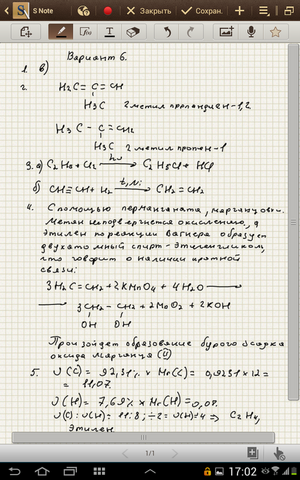 S Note
Закрыть
Сохран.
Вариант 6.
1. в)
2. H2C = C = CH
H3C 2 метил пропандиен-1,2
H3C - C = CH2
H3C 2 метил пропен-1
3. а) C2H6 + Cl2 hν C2H5Cl + HCl
б) CH≡CH + H2 t, Ni CH2=CH2
4. С помощью перманганата, марганцовки.
Метан не подвергнется окислению, а
этилен по реакции Вагнера образует
двухатомный спирт - этиленгликоль,
что говорит о наличии кратной
связи:
3H2C=CH2 + 2KMnO4 + 4H2O
3CH2 - CH2 + 2MnO2 + 2KOH
OH OH
Произойдет образование бурого осадка
оксида марганца (II)
5. υ(C) = 92,31% × Mr(C) = 0,9231 × 12 =
= 11,07.
υ(H) = 7,69% × Mr(H) = 0,07.
υ(C) : υ(H) = 11:8; ÷2 = υ(H)=4 ⇒ C2H4,
этилен
1/1
17:02